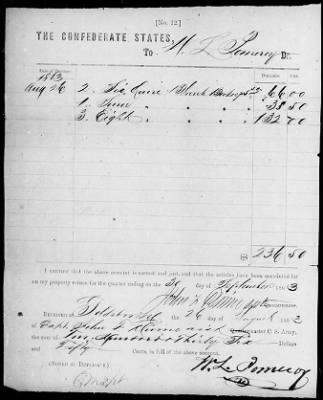 [No. 12.]
THE CONFEDERATE STATES,
To W. L. Pomeroy Dr.
Date of Purchase. DOLLARS. CTS.
1863
Aug 26 2 Six Quire Blank Books 66 00
1 Four " " 38 50
3 Eight " " 132 00
$ 236 50
I CERTIFY that the above account is correct and just, and that the articles have been accounted for
on my property return for the quarter ending on the 30 day of September 1863
John
RECEIVED at Goldsboro the 26 day of August 1863
of Capt. John Quartermaster C. S. Army,
the sum of Two Hundred & Thirty Six Dollars
and Fifty Cents, in full of the above account.
(SIGNED IN DUPLICATE.) W. L. Pomeroy